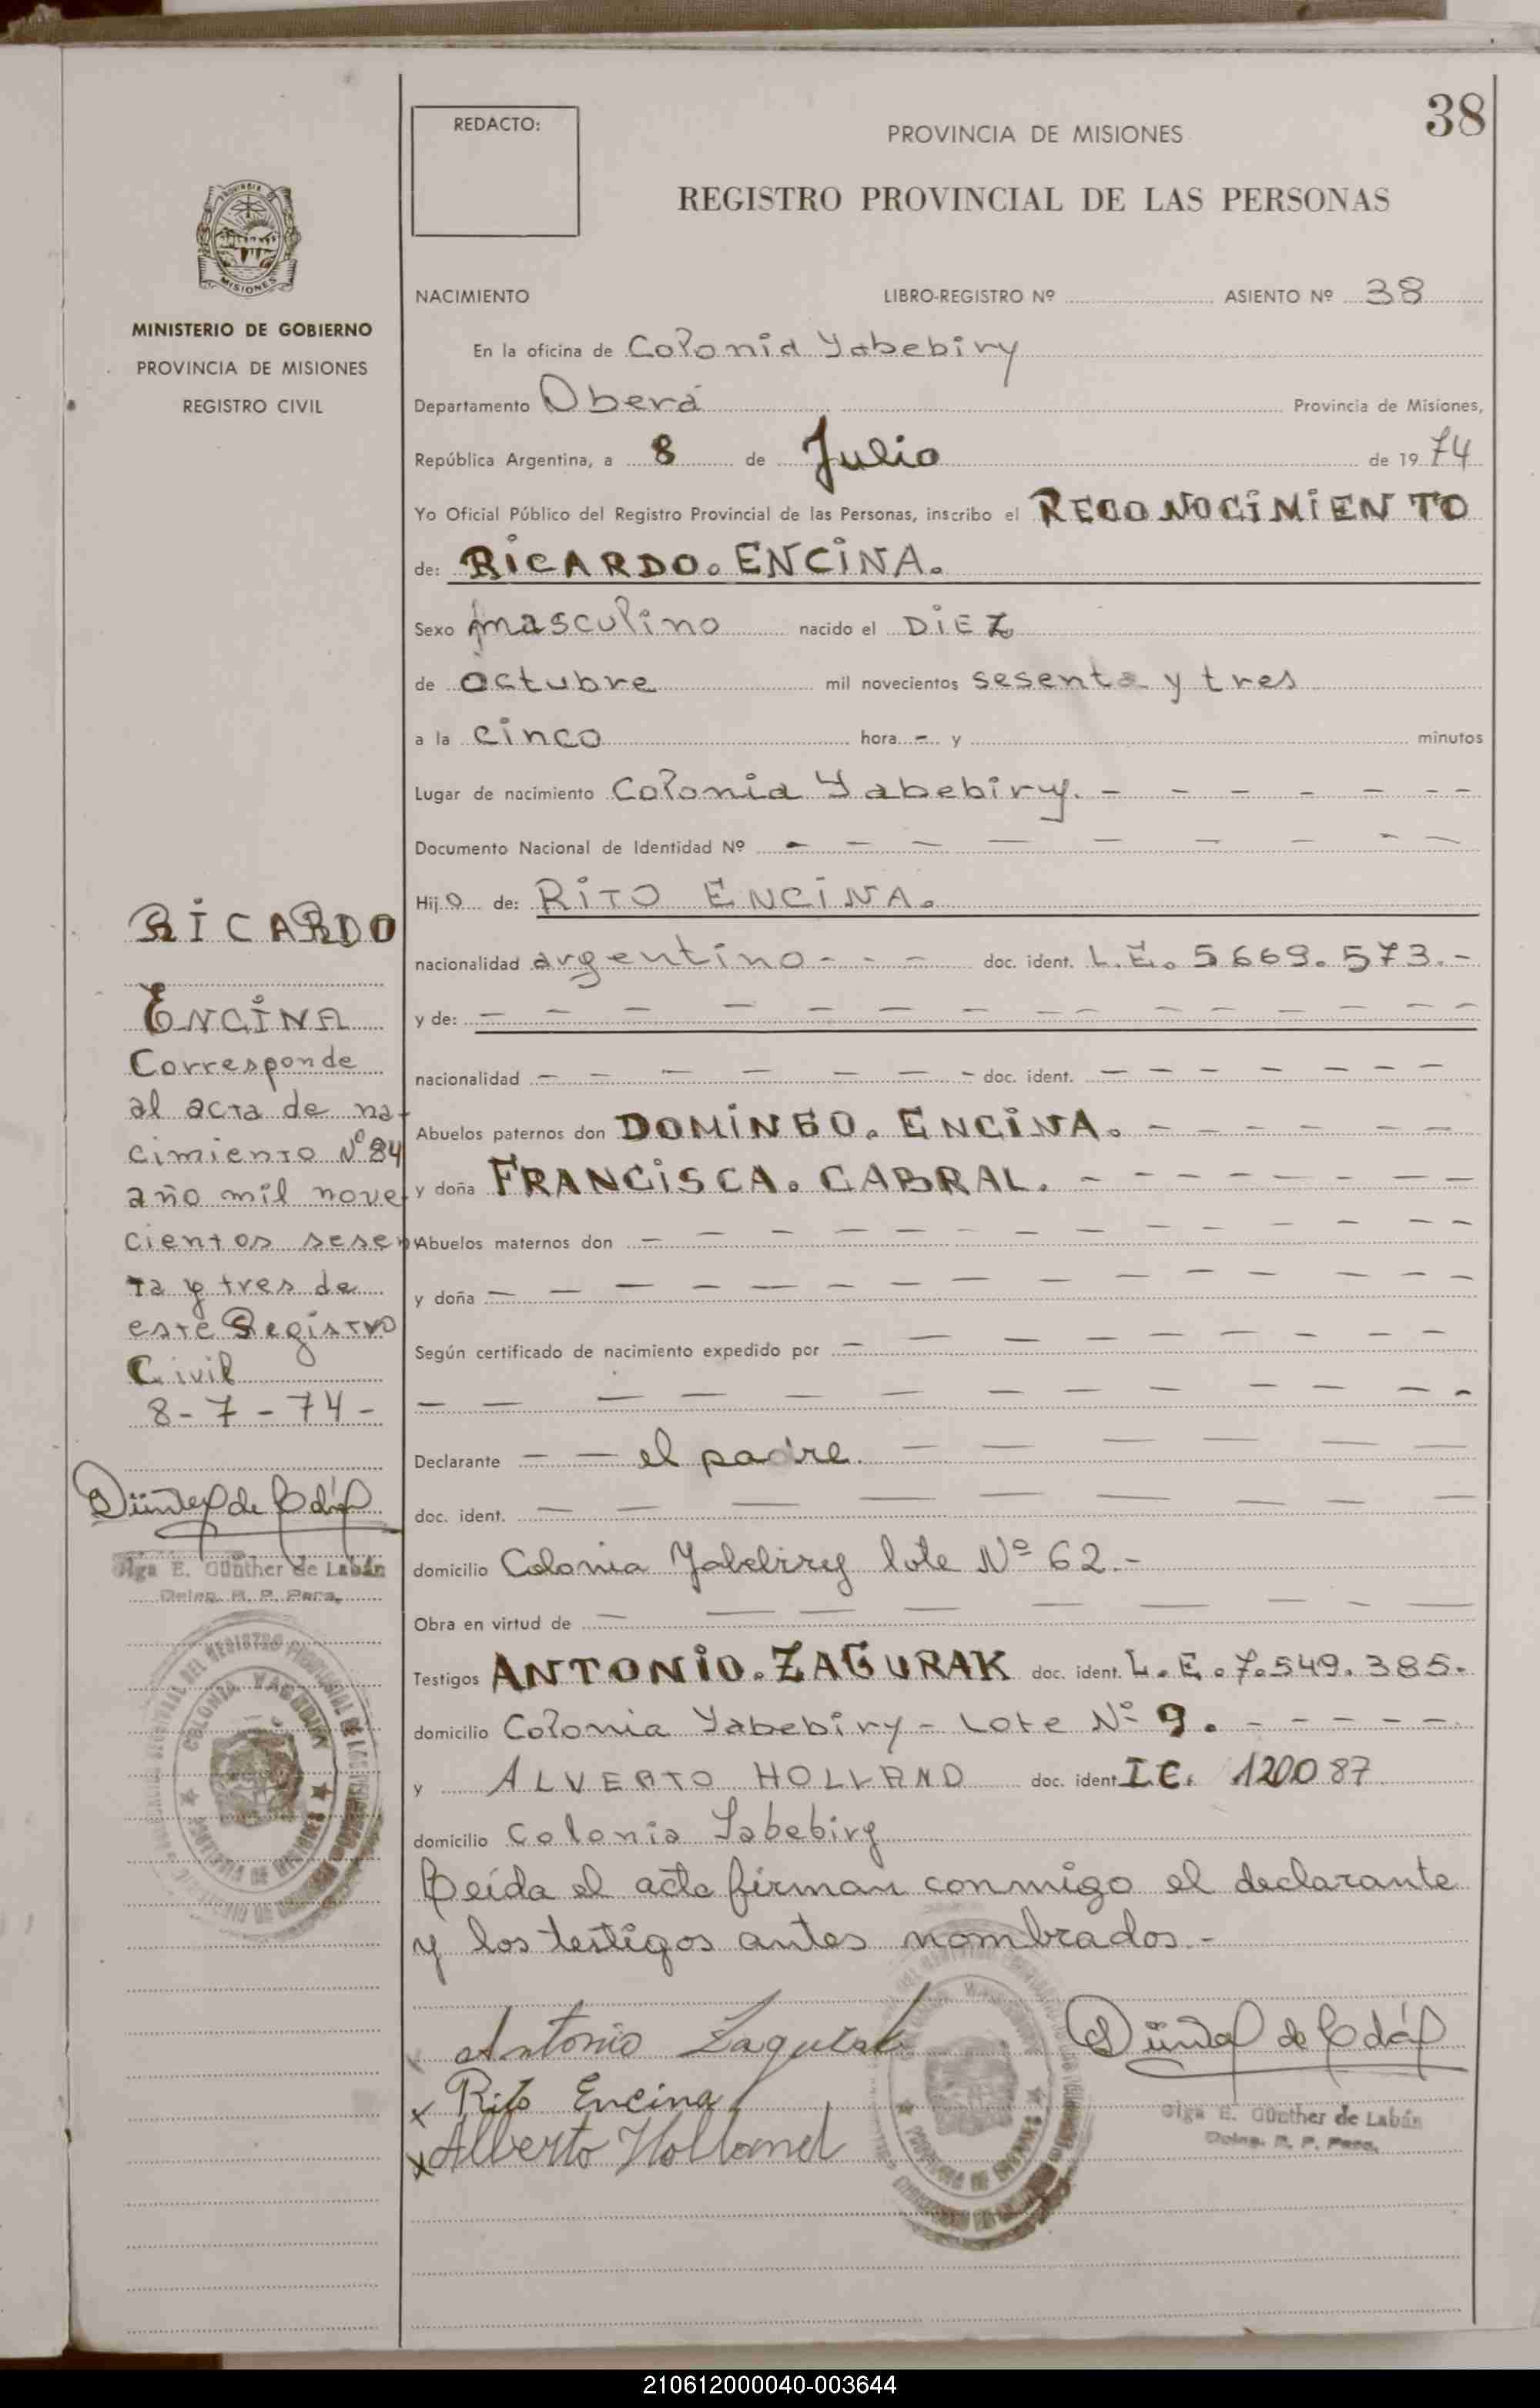 38
REDACTO:
PROVINCIA DE MISIONES
REGISTRO PROVINCIAL DE LAS PERSONAS
MISIONES
MINISTERIO DE GOBIERNO
PROVINCIA DE MISIONES
REGISTRO CIVIL
NACIMIENTO LIBRO-REGISTRO Nº ASIENTO Nº 38
En la oficina de Colonia Yabebiry
Departamento Oberá Provincia de Misiones,
República Argentina, a 8 de Julio de 1974
Yo Oficial Público del Registro Provincial de las Personas, inscribo el RECONOCIMIENTO
de: RICARDO. ENCINA.
Sexo masculino nacido el DIEZ
de octubre mil novecientos sesenta y tres
a la cinco hora - y minutos
Lugar de nacimiento Colonia Yabebiry. - - - - - - -
Documento Nacional de Identidad Nº - - - - - - - - -
Hijo de: RITO ENCINA.
nacionalidad argentino - - - doc. ident. L.E. 5669.573.-
y de: - - - - - - - - - - - - - -
nacionalidad - - - - - - - - doc. ident. - - - - - - -
Abuelos paternos don DOMINGO. ENCINA. - - - - - -
y doña FRANCISCA. CABRAL. - - - - - - - -
Abuelos maternos don - - - - - - - - - - - -
y doña - - - - - - - - - - - - - -
Según certificado de nacimiento expedido por - - - - - - - - -
- - - - - - - - - - - - -
Declarante - - el padre. - - - - - -
doc. ident. - - - - - - - - - -
domicilio Colonia Yabebiry lote Nº 62.-
Obra en virtud de - - - - - - - -
Testigos ANTONIO. ZAGURAK doc. ident. L.E. 7.549.385.
domicilio Colonia Yabebiry - Lote Nº 9. - - - - - -
y ALVERTO HOLLAND doc. ident I.C. 120087
domicilio Colonia Yabebiry
Leída el acta firman conmigo el declarante
y los testigos antes nombrados.-
Antonio Zagurak
x Rito Encina
x Alberto Holland
Olga E. Günther de Labán
RICARDO
ENCINA
Corresponde
al acta de na-
cimiento Nº 84
año mil nove-
cientos sesen
ta y tres de
este Registro
Civil
8-7-74-
Olga E. Günther de Labán
210612000040-003644